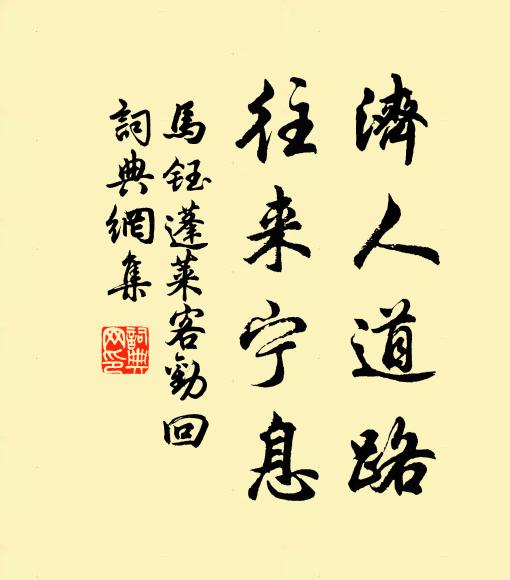 濟人道路
往来宁息
馬鈺蓬萊客勸回
詞典網集
詞典
网印